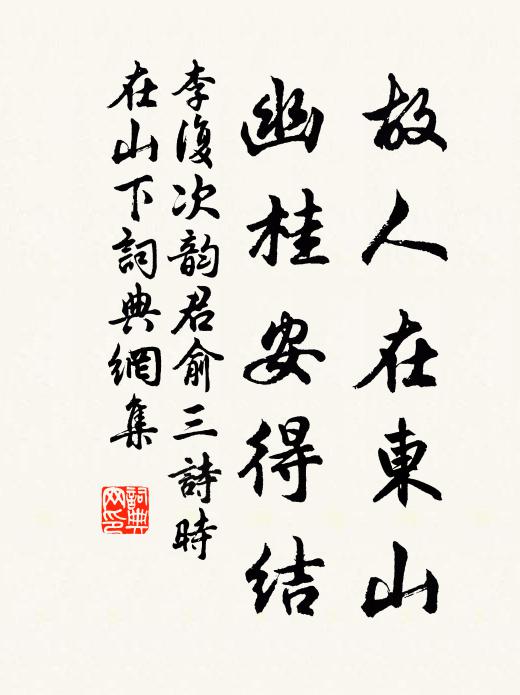 故人在東山
幽桂安得結
李復次韵君俞三詩時
在山下詞典網集
詞典
网印